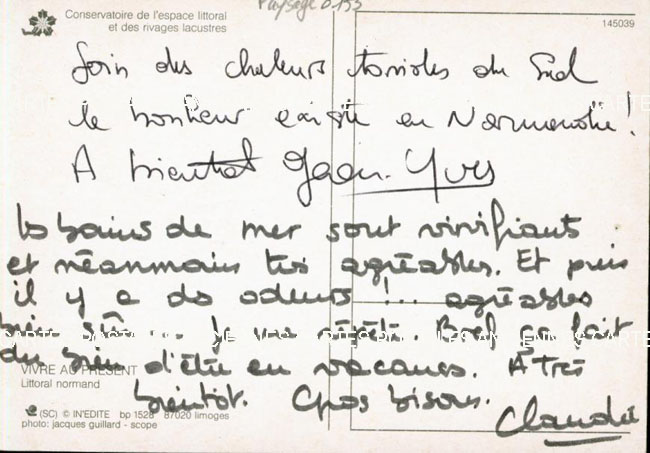 Paysage 0.133
Conservatoire de l'espace littoral
et des rivages lacustres
145039
Loin des chaleurs torrides du Sud
le bonheur existe en Normandie !
A bientôt Jean-Yves
les bains de mer sont vivifiants
et néanmoins très agréables. Et puis
il y a des odeurs !.. agréables
bien sûr
Bref ça fait
du bien d'être en vacances. À très
bientôt. Gros bisous.
Claudie
VIVRE AU PRÉSENT
Littoral normand
(SC) © IN'EDITE bp 1528 87020 limoges
photo: jacques guillard - scope